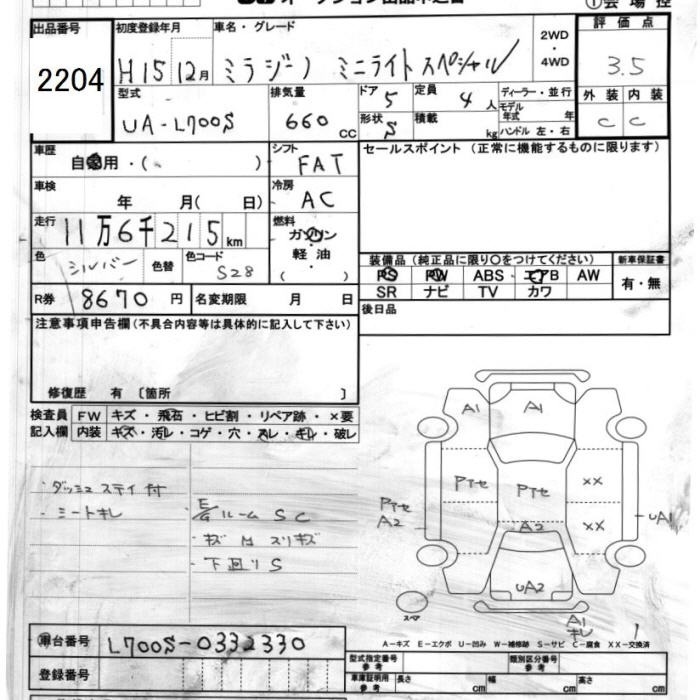 オークション出品申込書
①会場控
出品番号 初度登録年月 車名・グレード 評価点
2204
H15 12月 ミラジーノ ミニライトスペシャル 2WD・4WD 3.5
型式 排気量 ドア 5 定員 4人 ディーラー・並行 外装 内装
UA-L700S 660 cc 形状 S 積載 kg モデル年式 年 ハンドル 左・右 C C
車歴 自家用・( ) シフト FAT セールスポイント(正常に機能するものに限ります)
車検 年 月( 日) 冷房 AC
走行 11万6千215km 燃料 ガソリン 軽油 ( )
色 シルバー 色替 色コード S28
装備品(純正品に限り○をつけてください) 新車保証書
PS PW ABS エアB AW 有・無
SR ナビ TV カワ
R券 8670円 名変期限 月 日 後日品
注意事項申告欄(不具合内容等は具体的に記入して下さい)
修復歴 有 〔箇所 〕
検査員 FW キズ・飛石・ヒビ割・リペア跡・×要
記入欄 内装 キズ・汚レ・コゲ・穴・スレ・キレ・破レ
・ダッシュ ステイ付
・シートキレ
・E/Gルーム SC
・キズ M スリキズ
・下回リS
A1 A1
Pアセ Pアセ ××
Pアセ
A2 A2 ×× UA1
UA2
スペア
A1
キレ
A-キズ E-エクボ U-凹み W-補修跡 S-サビ C-腐食 XX-交換済
車台番号 L700S-0332330
登録番号
型式指定番号 参考 類別区分番号 参考
車庫証明用 参考 長さ cm 幅 cm 高さ cm